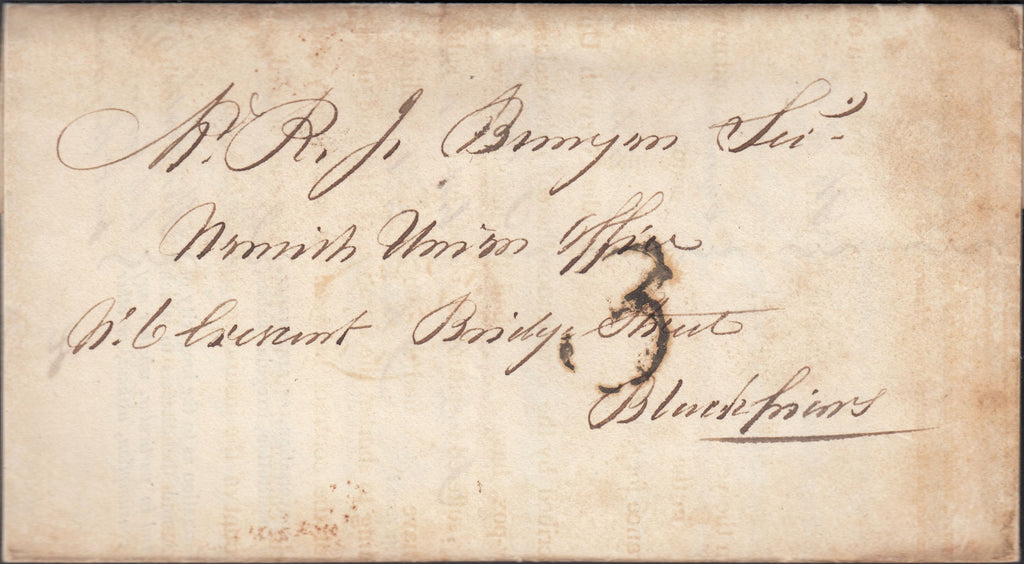 Mr. R. J. Bunyon Sec.
Norwich Union Office
No. 6 Crescent Bridge Street
3
Blackfriars